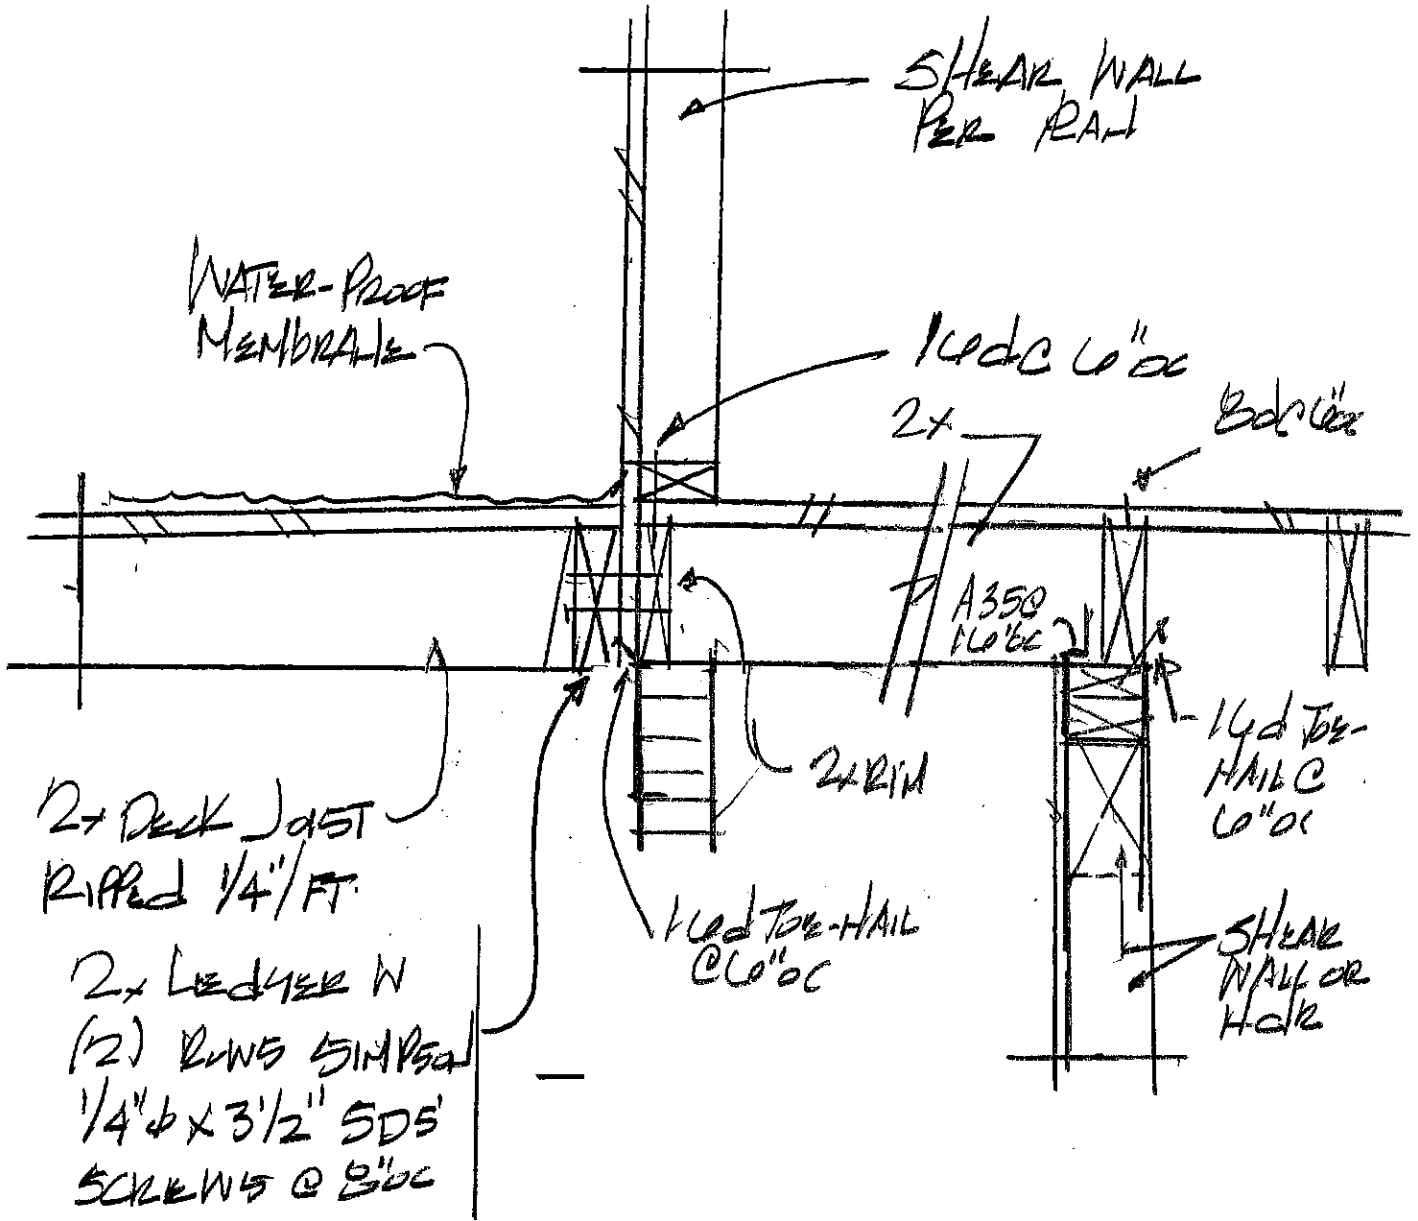 SHEAR WALL
PER PLAN
WATER-PROOF
MEMBRANE
16d@ 6"oc
2x
8d@ 6"oc
A35@
16"oc
2x RIM
16d TOE-
NAIL @
6"oc
2x DECK JOIST
RIPPED 1/4"/FT.
16d TOE-NAIL
@ 6"oc
SHEAR
WALL OR
HDR
2x LEDGER W
(2) ROWS SIMPSON
1/4"ϕ x 3 1/2" SDS
SCREWS @ 8"oc